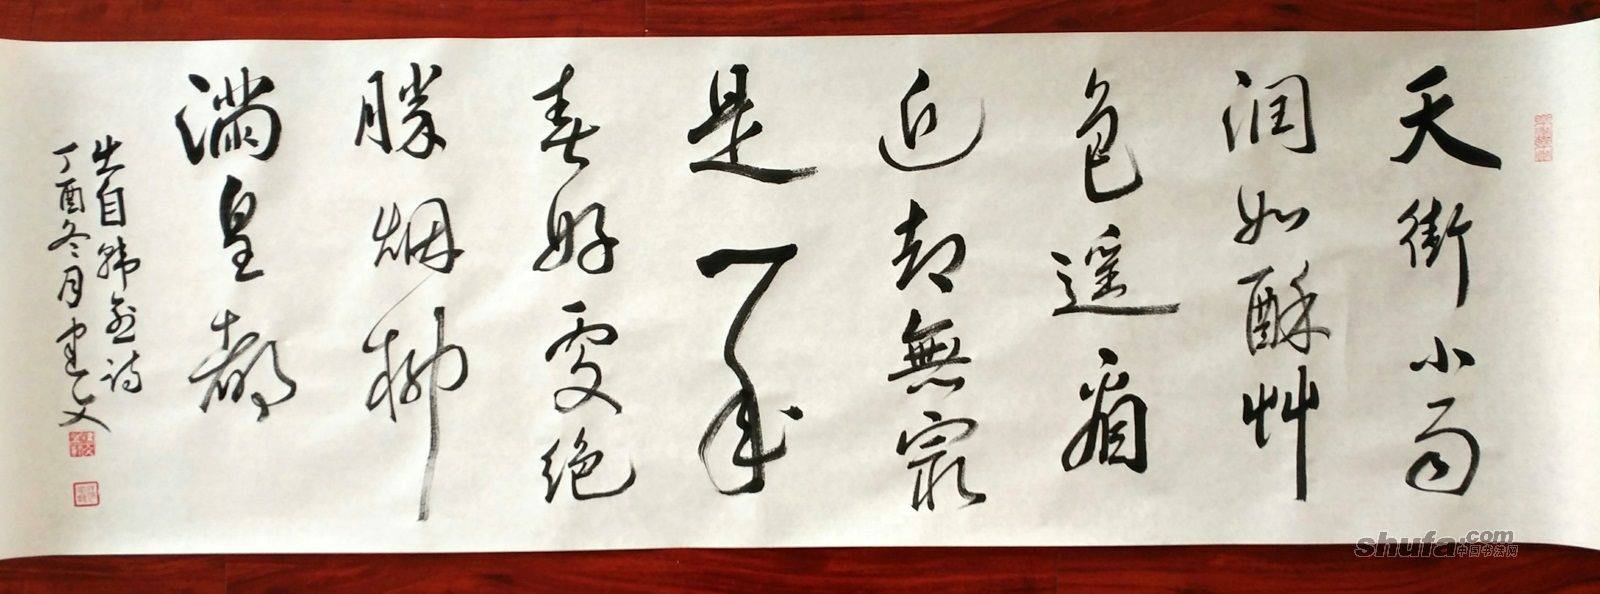 天街小雨
润如酥艸
色遥看
近却無最
是一年
春好处绝
勝烟柳
满皇都
出自韩愈诗
丁酉冬月
shufa.com
中国书法网